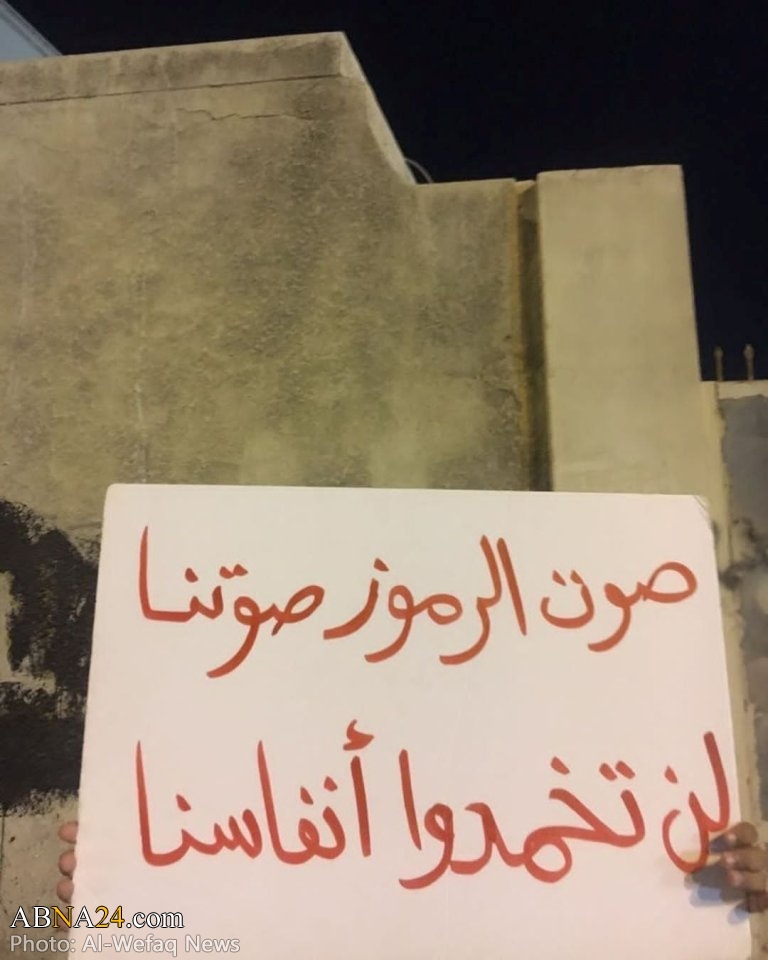 صوت الرموز صوتنا
لن تخمدوا أنفاسنا
ABNA24.com
Photo: Al-Wefaq News